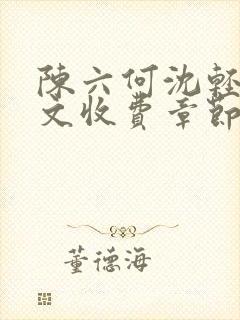 陳六何沈輕
文收費章節
董德海